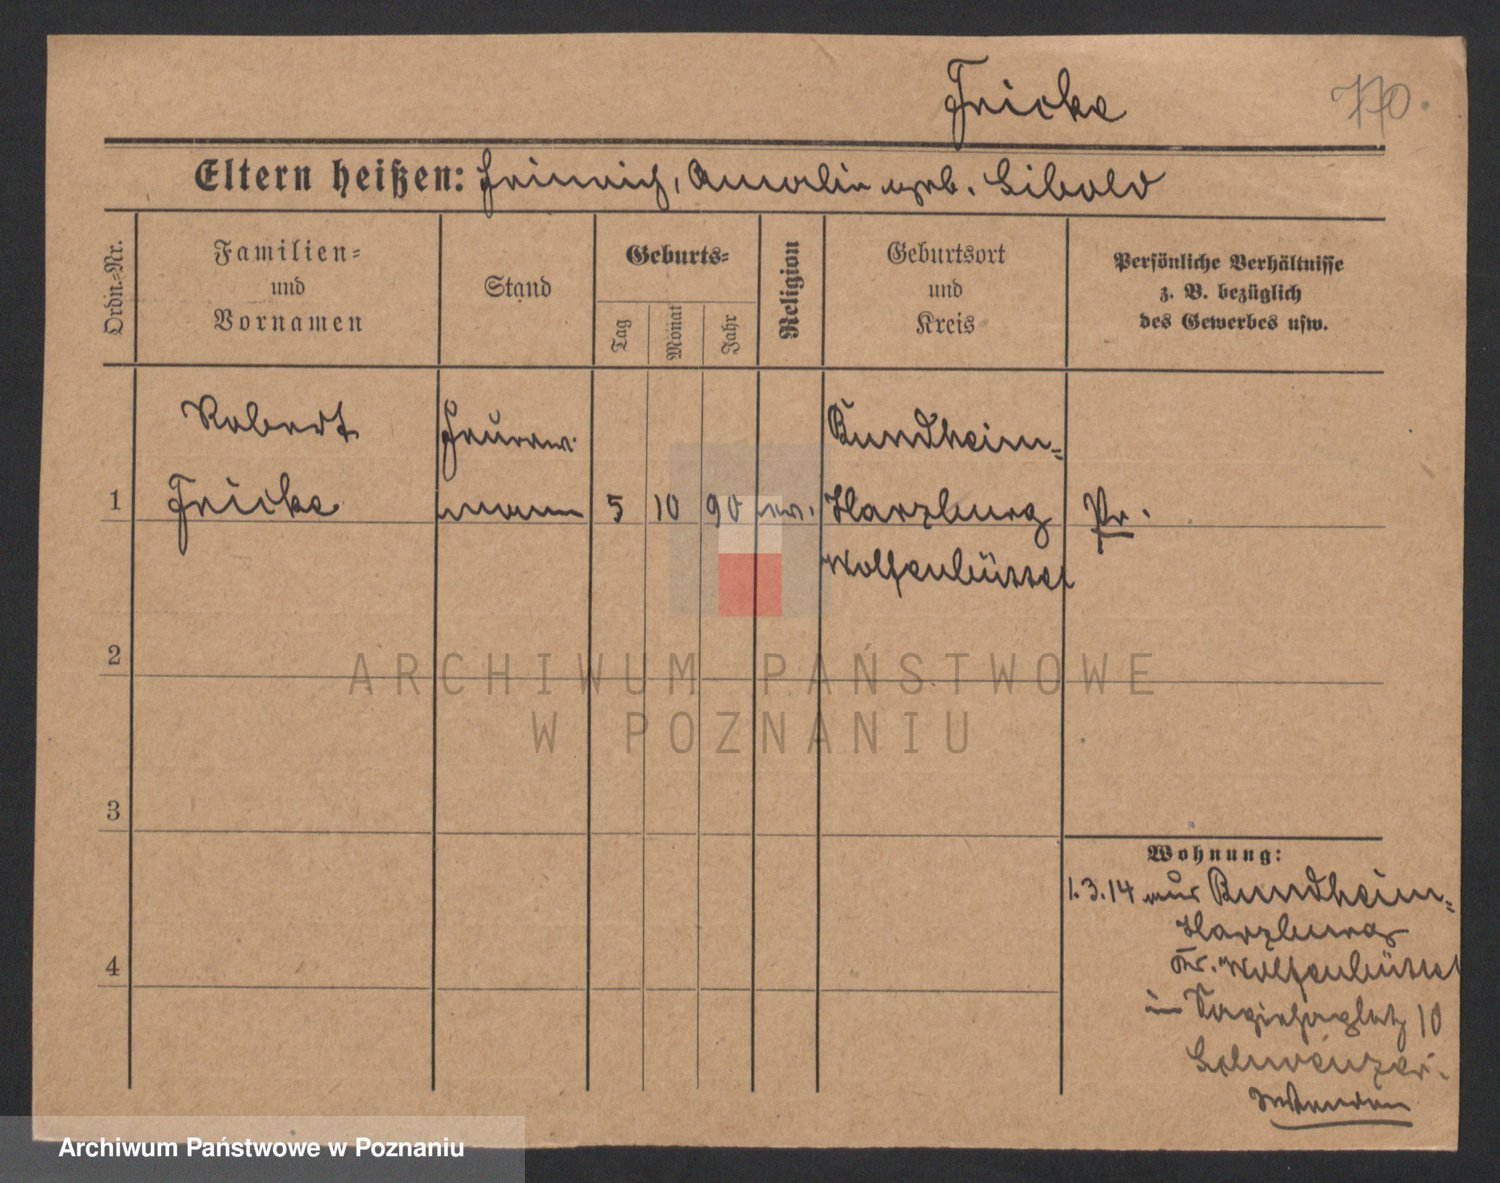 Fricke
770.
Eltern heißen: Heinrich, Amalie geb. Sibold
Ordn.=Nr.
Familien=
und
Vornamen
Stand
Geburts=
Tag
Monat
Jahr
Religion
Geburtsort
und
Kreis
Persönliche Verhältnisse
z. B. bezüglich
des Gewerbes usw.
Robert
Fricke
mann
1
5 10 90
Bundheim=
Harzburg
Wolfenbüttel
Pr.
2
3
4
Wohnung:
1.3.14 aus Bundheim=
Harzburg
Kr. Wolfenbüttel
in 10
ARCHIWUM PAŃSTWOWE
W POZNANIU
Archiwum Państwowe w Poznaniu